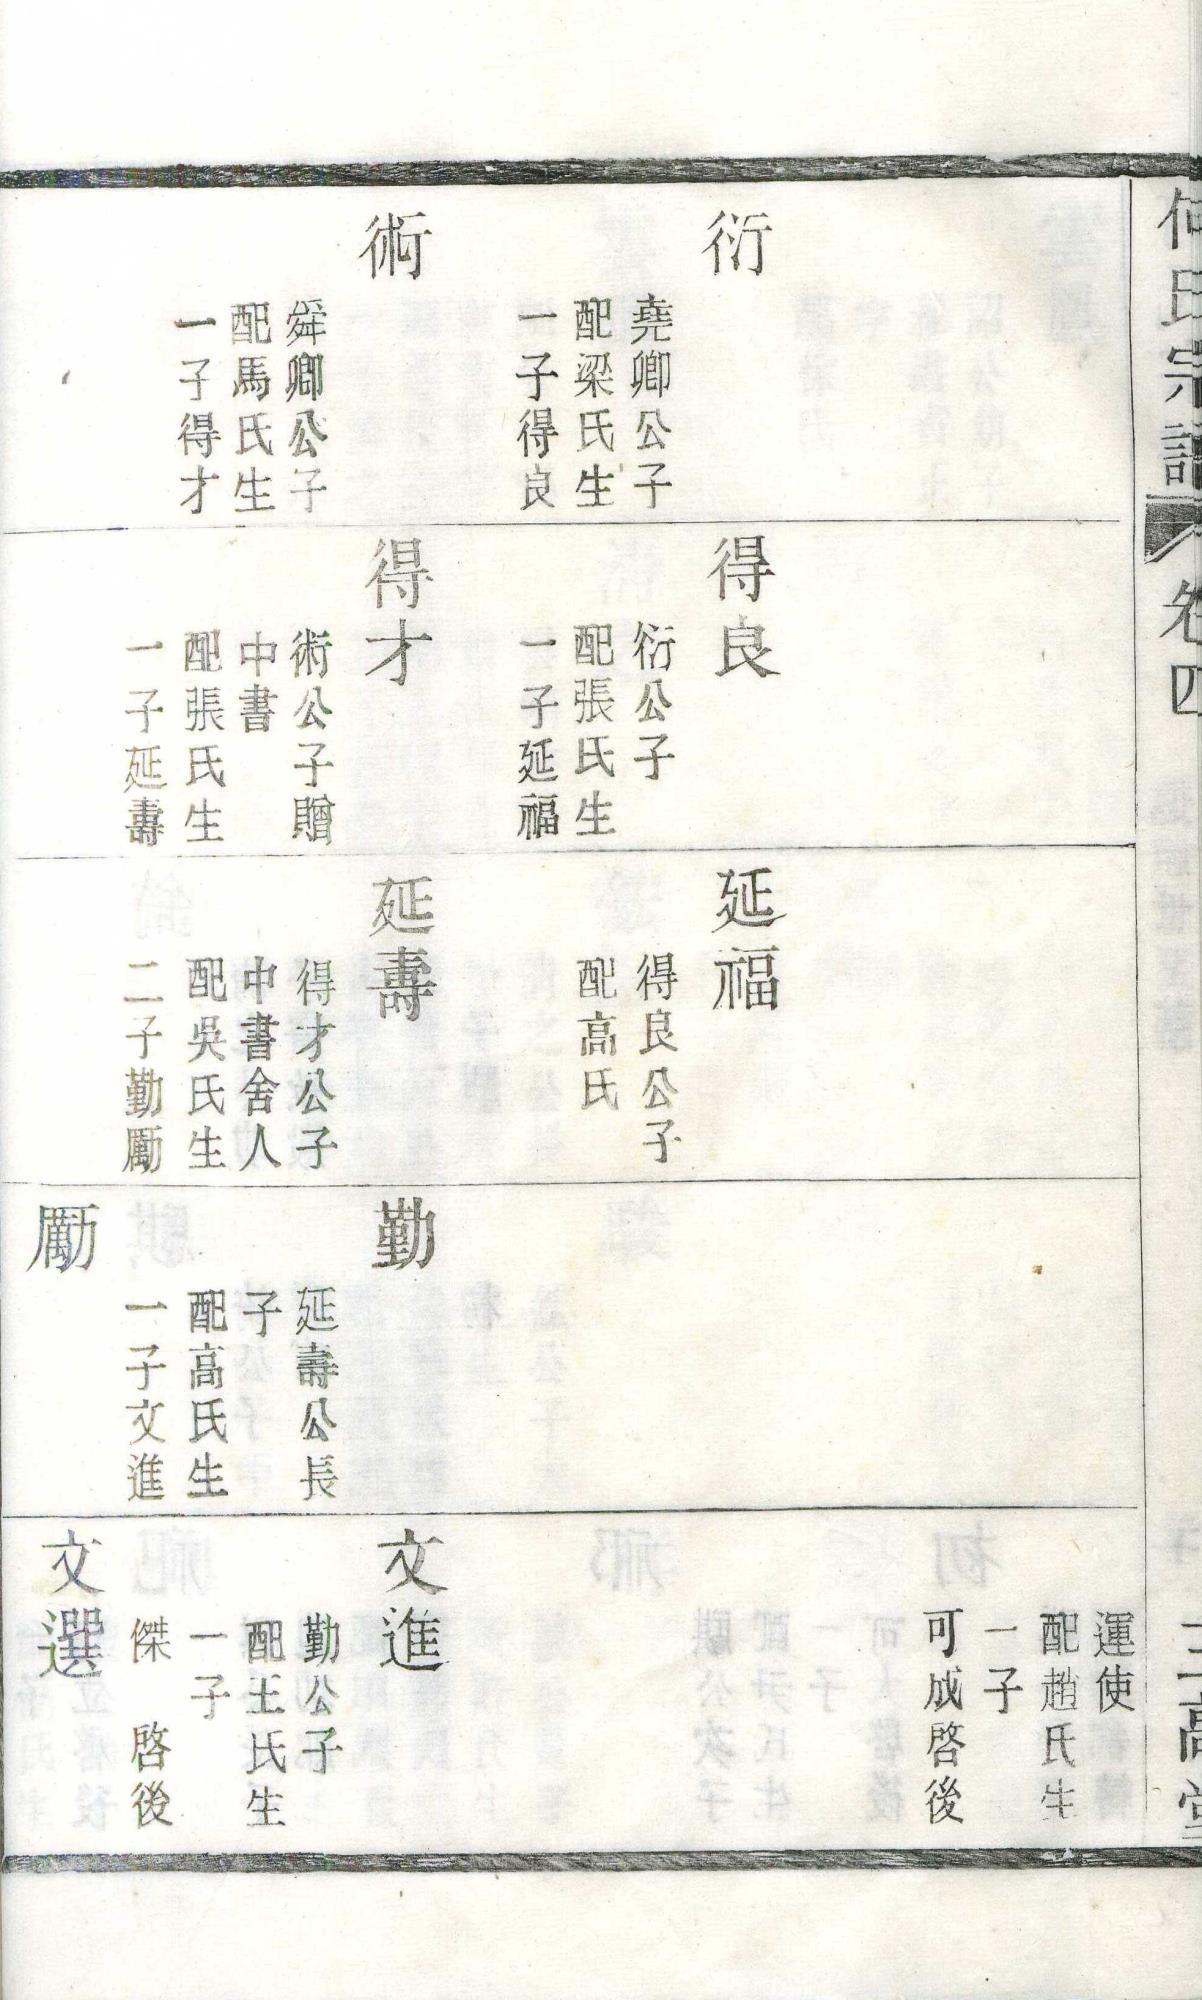 何氏宗譜
卷四
三高堂
衍
堯卿公子
配梁氏生
一子得良
術
舜卿公子
配馬氏生
一子得才
得良
衍公子
配張氏生
一子延福
得才
術公子贈
中書
配張氏生
一子延壽
延福
得良公子
配高氏
延壽
得才公子
中書舍人
配吳氏生
二子勤勵
勤
延壽公長
子
配高氏生
一子文進
勵
運使
配趙氏生
一子
可成啓後
文進
勤公子
配王氏生
一子
傑 啓後
文選